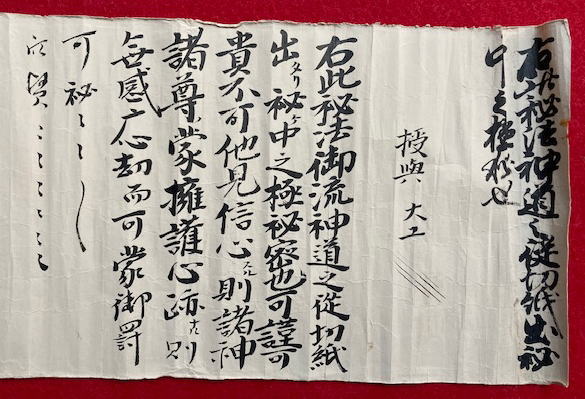 右此秘法神道之従切紙出秘
中之極秘也
授與 大工
右此秘法御流神道之従切紙
出タリ秘ヶ中之極秘密也可謹可
貴不可他見信心則諸神
諸尊蒙擁護心疎則
無感應却而可蒙御罰
可秘〻〻